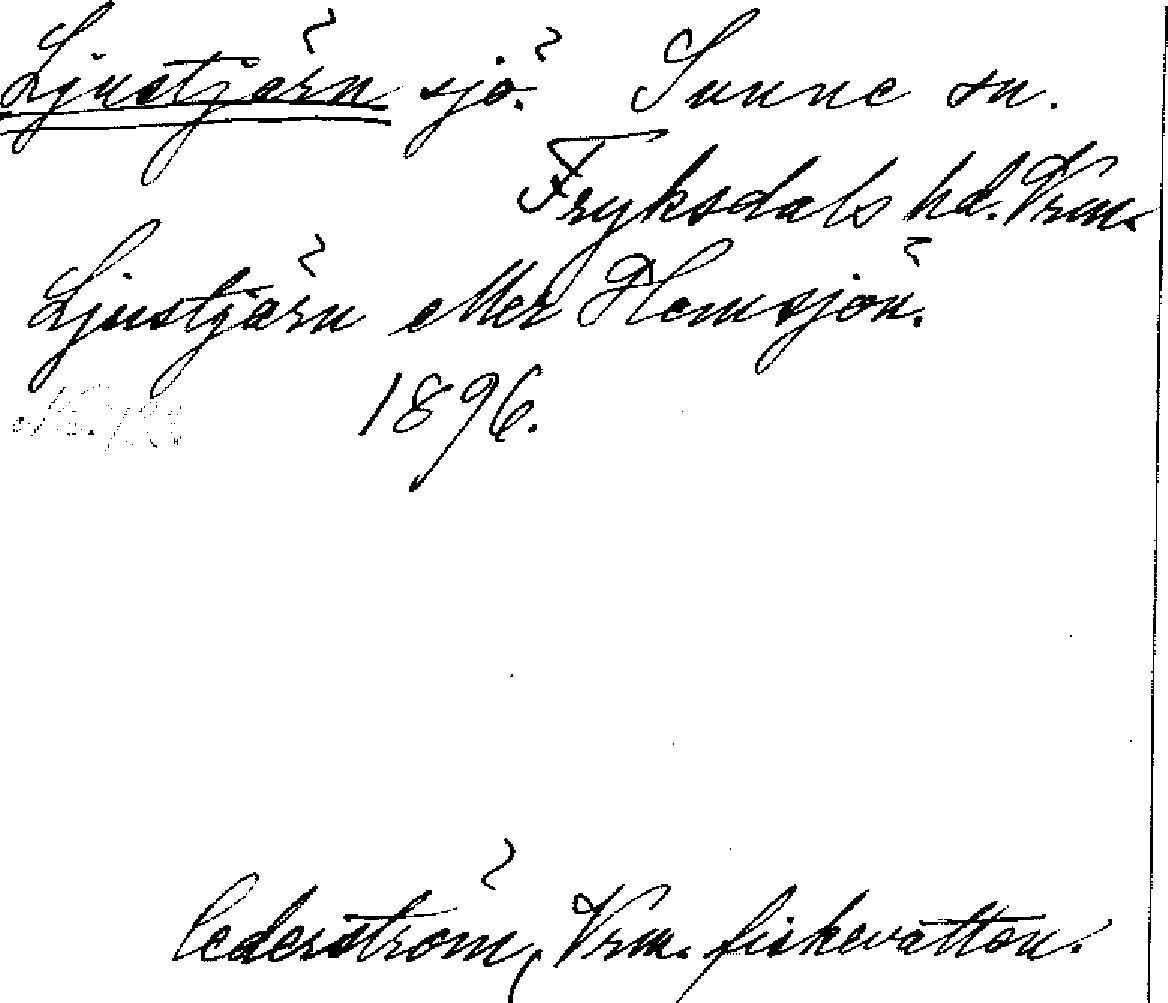 Ljustjärn sjö. Sunne sn.
Fryksdals hd. Vrm.
Ljustjärn eller Hemsjön.
1896.
Cederström, Vrm. fiskevatten.